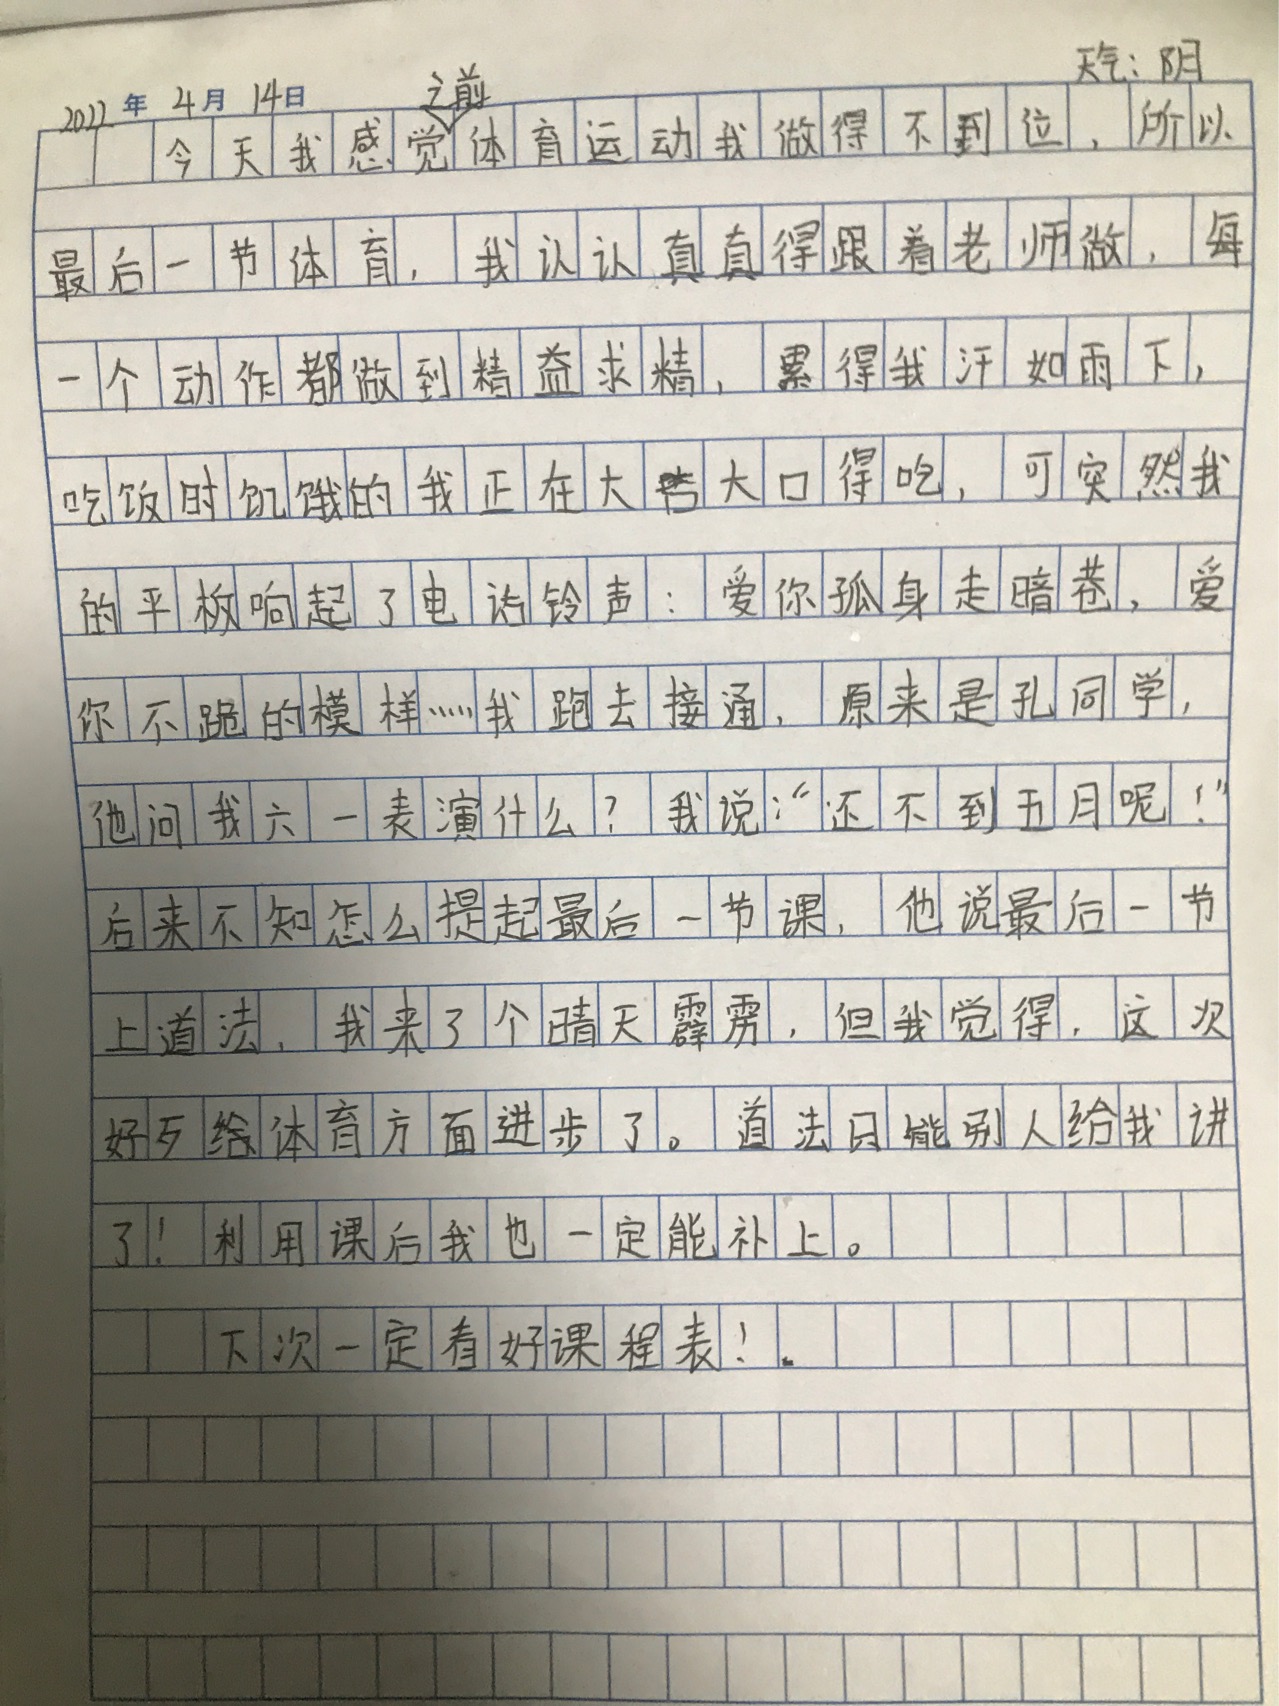 2022年4月14日 天气：阴
今天我感觉之前体育运动我做得不到位，所以
最后一节体育，我认认真真得跟着老师做，每
一个动作都做到精益求精，累得我汗如雨下，
吃饭时饥饿的我正在大口大口得吃，可突然我
的平板响起了电话铃声：爱你孤身走暗苍，爱
你不跪的模样……我跑去接通，原来是孔同学，
他问我六一表演什么？我说：“还不到五月呢！”
后来不知怎么提起最后一节课，他说最后一节
上道法，我来了个晴天霹雳，但我觉得，这次
好歹给体育方面进步了。道法只能别人给我讲
了！利用课后我也一定能补上。
下次一定看好课程表！.